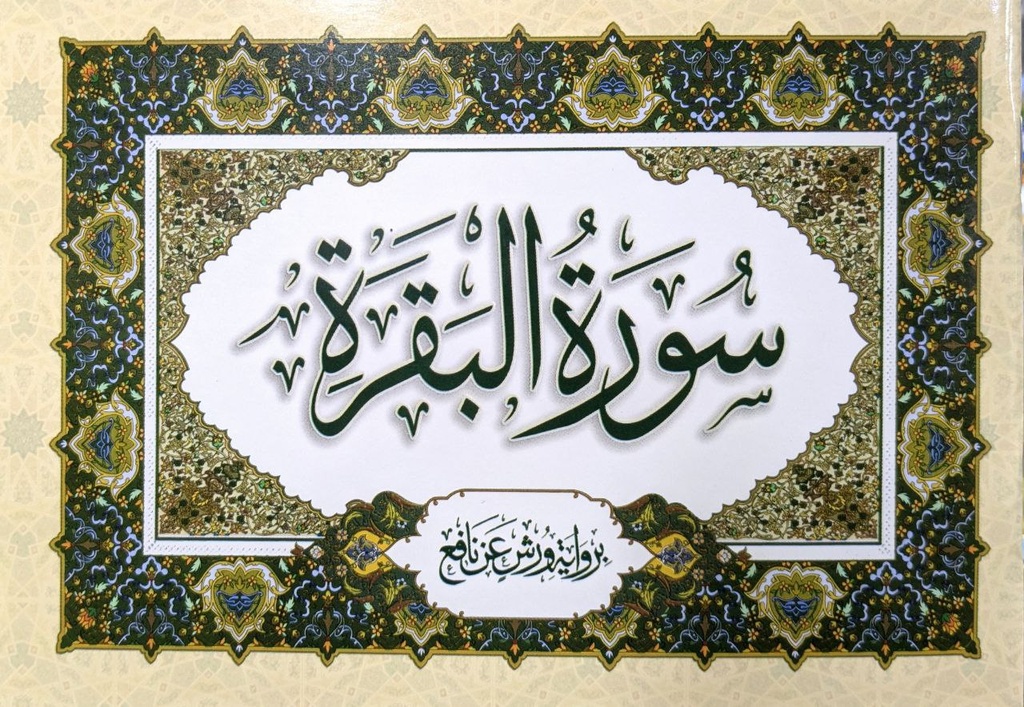 سُورَةُ الْبَقَرَةِ
برواية ورش عن نافع